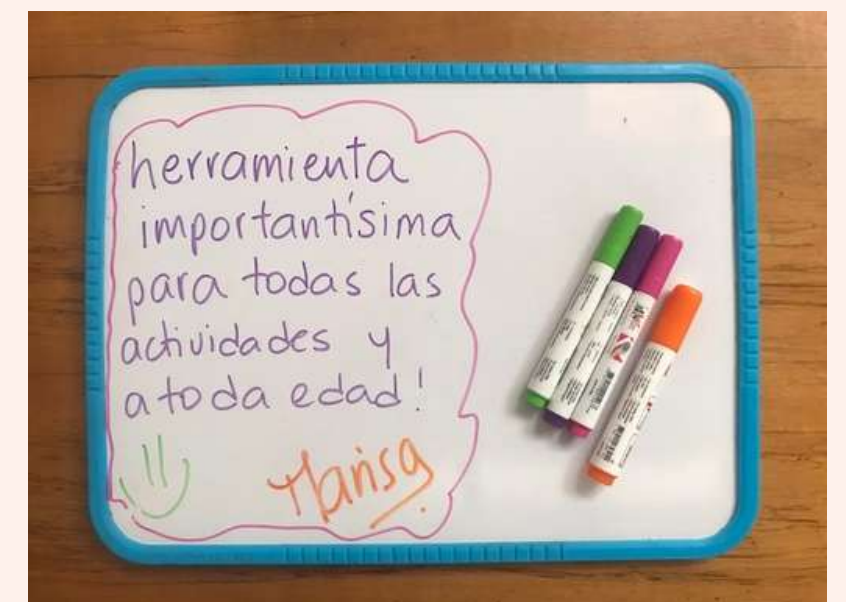 herramienta
importantísima
para todas las
actividades y
a toda edad!
Marisa